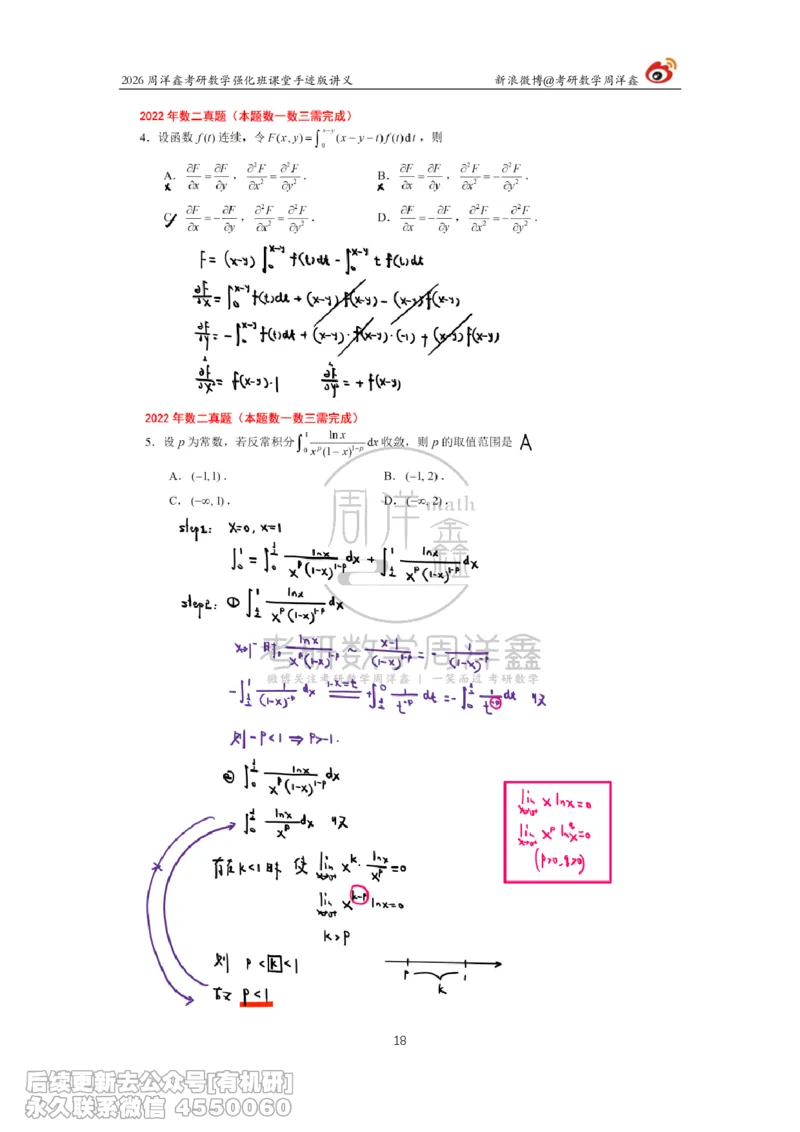 2026 周洋鑫考研数学强化班课堂手迹版讲义 新浪微博@考研数学周洋鑫
2022 年数二真题（本题数一数三需完成）
4．设函数 f(t) 连续，令 F(x,y)=∫₀^{x−y}(x−y−t)f(t)dt，则
A．∂F/∂x=∂F/∂y，∂²F/∂x²=∂²F/∂y²． B．∂F/∂x=∂F/∂y，∂²F/∂x²=−∂²F/∂y²．
C．∂F/∂x=−∂F/∂y，∂²F/∂x²=∂²F/∂y²． D．∂F/∂x=−∂F/∂y，∂²F/∂x²=−∂²F/∂y²．
F=(x-y)∫₀^{x-y} f(t)dt-∫₀^{x-y} t f(t)dt
∂F/∂x=∫₀^{x-y} f(t)dt+(x-y)f(x-y)-(x-y)f(x-y)
∂F/∂y=-∫₀^{x-y} f(t)dt+(x-y)·f(x-y)·(-1)+(x-y)f(x-y)
∂²F/∂x²=f(x-y)·1 ∂²F/∂y²=+f(x-y)
2022 年数二真题（本题数一数三需完成）
5．设 p 为常数，若反常积分∫₀¹ ln x/(x^p(1−x)^{1−p}) dx 收敛，则 p 的取值范围是 A
A．(−1,1)． B．(−1,2)．
C．(−∞,1)． D．(−∞,2)．
周洋鑫math
step1: x=0, x=1
∫₀¹=∫₀^{1/2} lnx/(x^p(1-x)^{1-p}) dx+∫_{1/2}¹ lnx/(x^p(1-x)^{1-p}) dx
step2: ① ∫_{1/2}¹ lnx/(x^p(1-x)^{1-p}) dx
考研数学周洋鑫
x→1⁻时, lnx/(x^p(1-x)^{1-p}) ~ (x-1)/(1-x)^{1-p}=-1/(1-x)^{-p}
微博关注考研数学周洋鑫 | 一笑而过 考研数学
-∫_{1/2}¹ 1/(1-x)^{-p} dx =(1-x=t)= +∫_{1/2}⁰ 1/t^{-p} dt=-∫₀^{1/2} 1/t^{-p} dt 收
则-p<1⇒p>-1.
② ∫₀^{1/2} lnx/(x^p(1-x)^{1-p}) dx
∫₀^{1/2} lnx/x^p dx 收
存在k<1时 使 lim_{x→0+} x^k·lnx/x^p=0
lim_{x→0+} x^{k-p} lnx=0
k>p
则 p<k<1
p k 1
故 p<1
lim_{x→0+} x lnx=0
lim_{x→0+} x^p ln^q x=0
(p>0,q>0)
18
后续更新去公众号[有机研]
永久联系微信 4550060